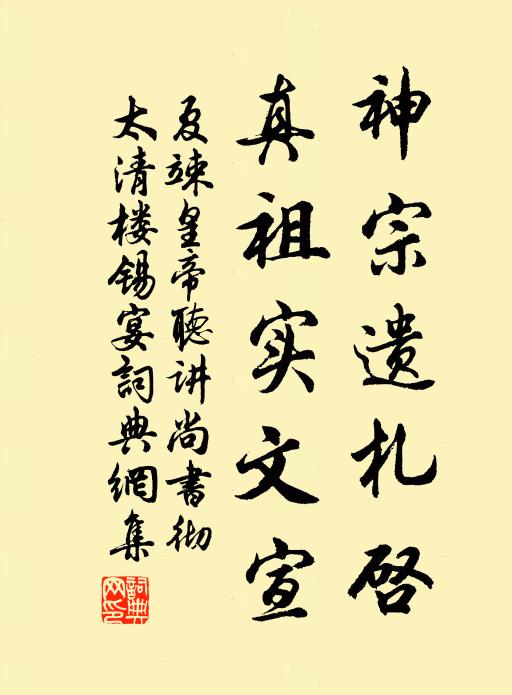 神宗遗札启
真祖实文宣
夏竦皇帝聽讲尚書彻
太清楼锡宴詞典網集
詞典网印